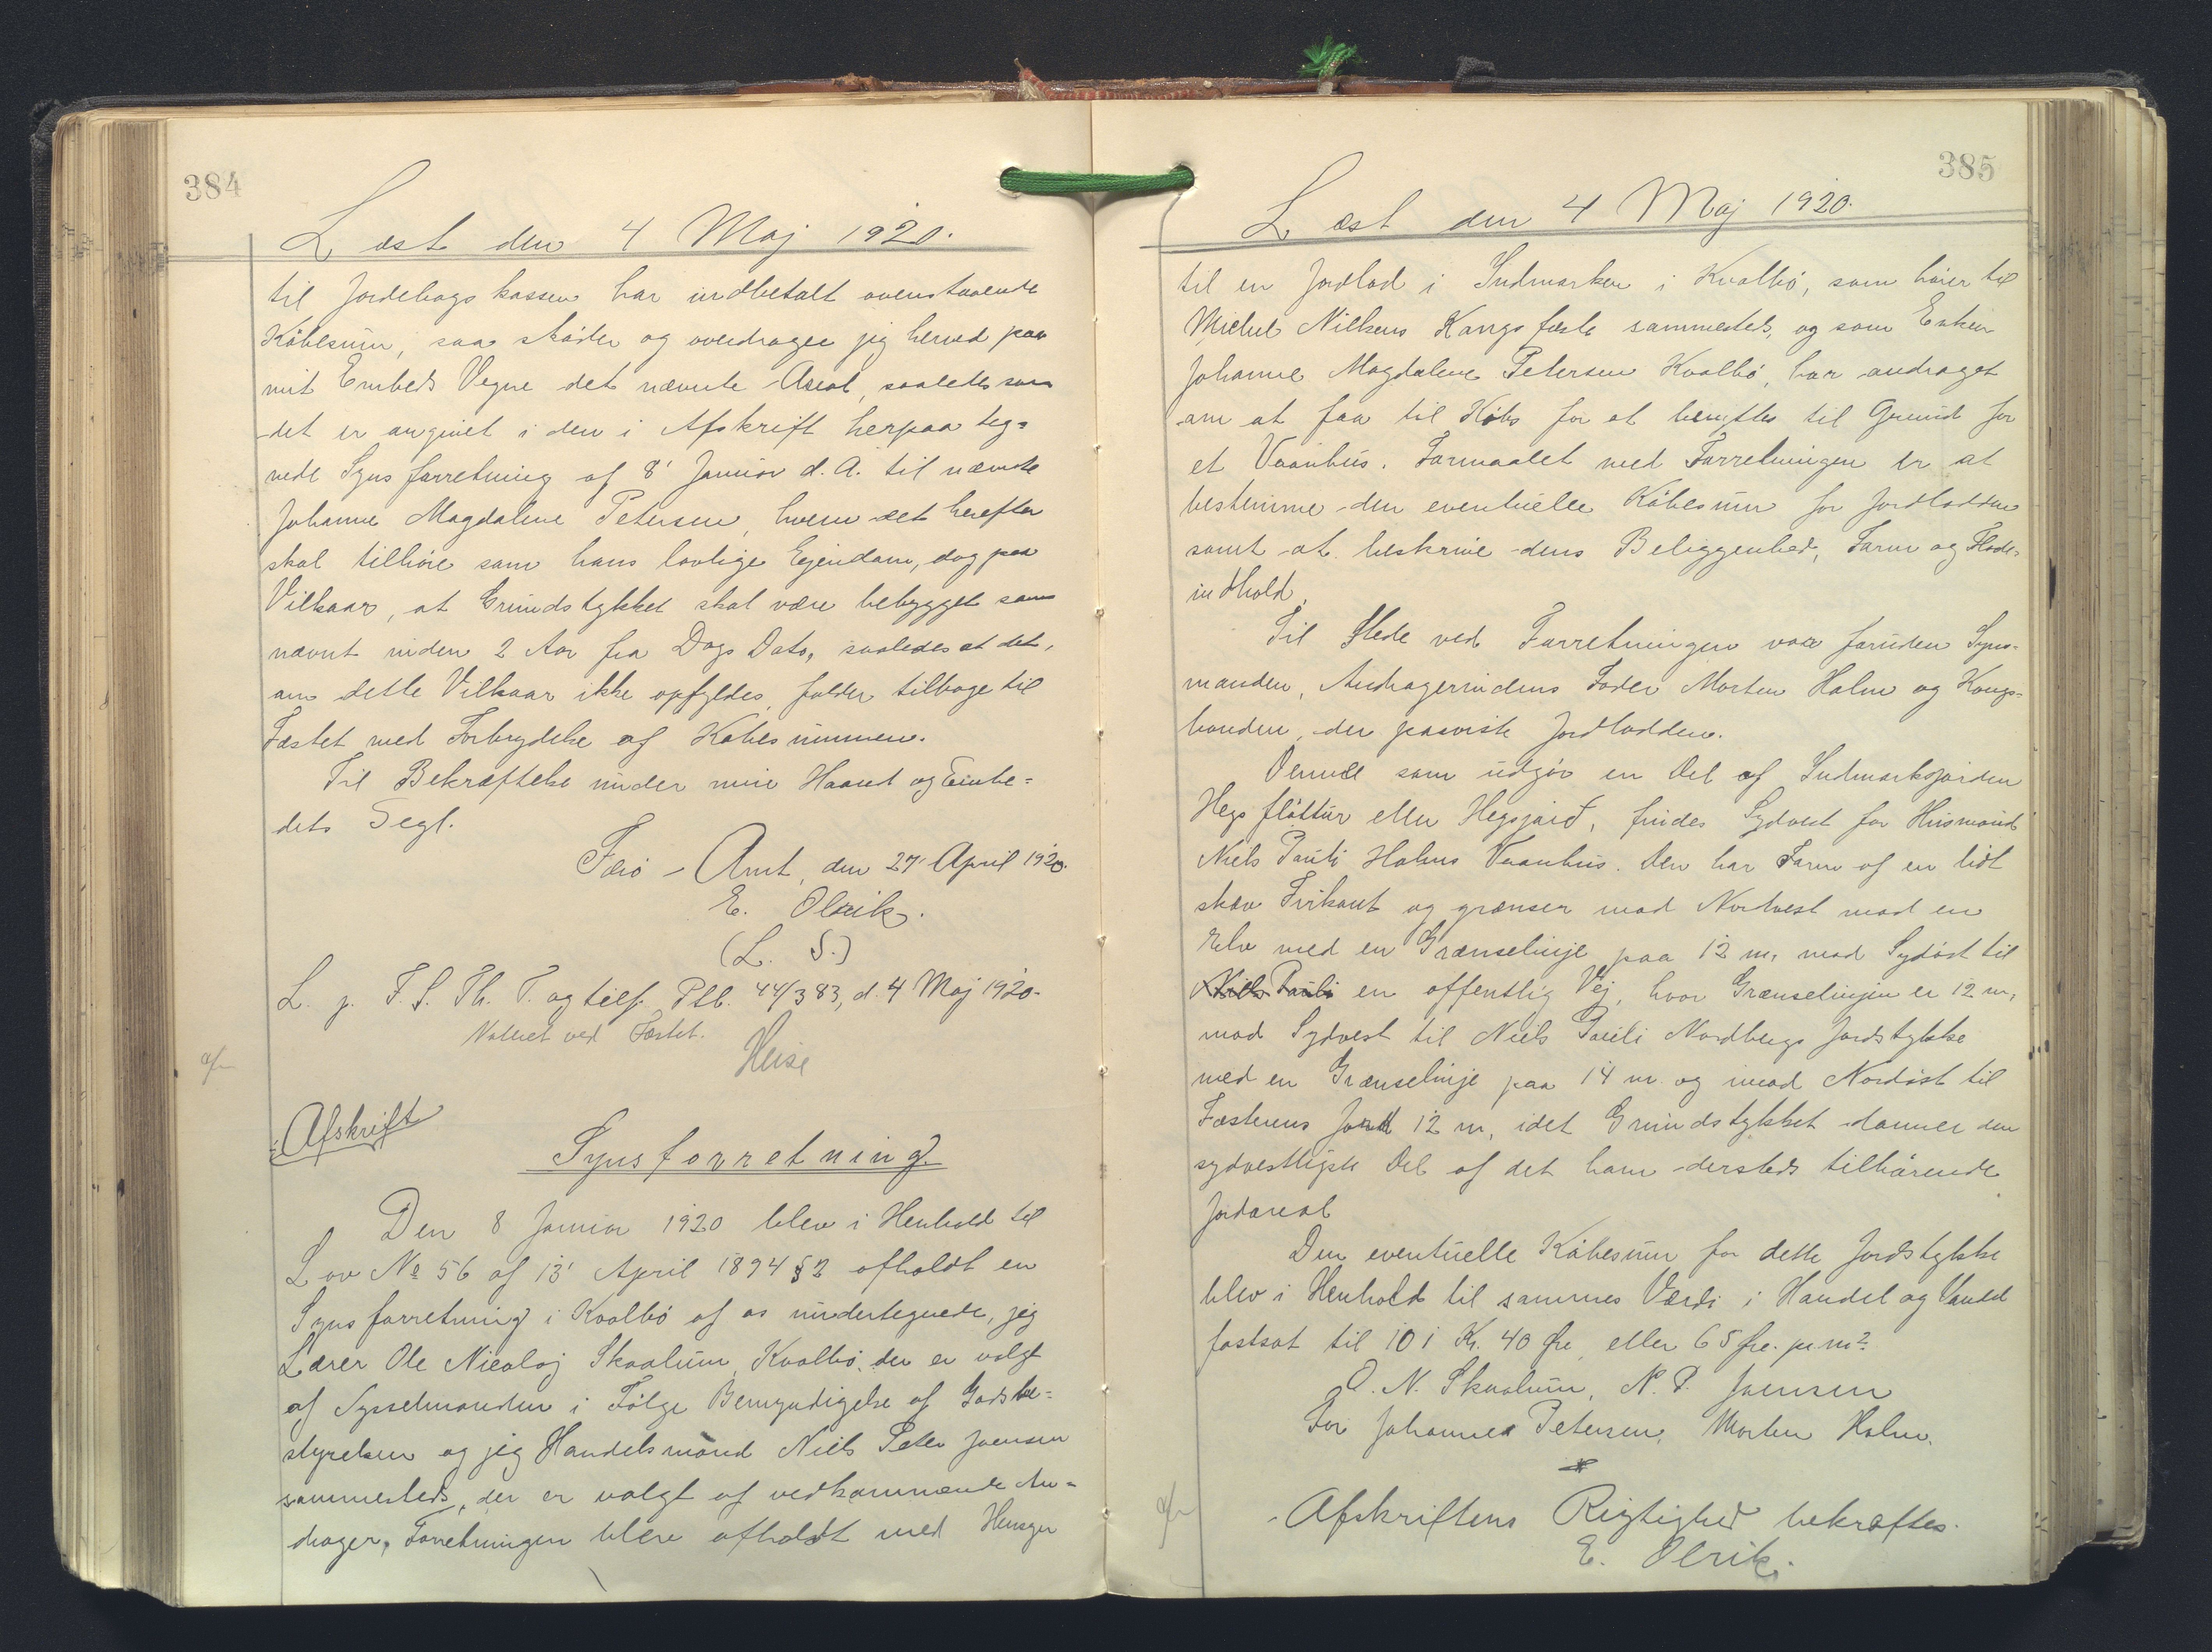 384
Læst den 4 Maj 1920.
til Jordebogskassen har indbetalt ovenstaaende
Købesum, saa skøder og overdrager jeg herved paa
mit Embeds Vegne det nævnte Areal, saaledes som
det er angivet i den i Afskrift herpaa teg=
nede Synsforretning af 8' Januar d. A. til nævnte
Johanne Magdalene Petersen, hvem det herefter
skal tilhøre som hans lovlige Ejendom, dog paa
Vilkaar, at Grundstykket skal være bebygget som
nævnt inden 2 Aar fra Dags Dato, saaledes at det,
om dette Vilkaar ikke opfyldes, falder tilbage til
Fæstet med Forbrydelse af Købesummen.
Til Bekræftelse under min Haand og Embe=
dets Segl.
Færø Amt, den 27' April 1920.
E. Olrik.
(L. S.)
L. p. F. S. Th. T. og tilf. Ptb. 44/383, d. 4 Maj 1920.
Noteret ved Fæstet.
Heise
Afskrift
Synsforretning.
Den 8 Januar 1920 blev i Henhold til
Lov No 56 af 13' April 1894 § 2 afholdt en
Synsforretning i Kvalbø af os undertegnede, jeg
Lærer Ole Nicolaj Skaalum, Kvalbø, der er valgt
af Sysselmanden i Følge Bemyndigelse af Godsbe=
styrelsen og jeg Handelsmand Niels Peter Joensen
sammesteds, der er valgt af vedkommende An=
drager, Forretningen blev afholdt med Hensyn
385
Læst den 4 Maj 1920.
til en Jordlod i Indmarken i Kvalbø, som hører til
Michel Nilsens Kongsfæste sammesteds, og som Enken
Johanne Magdalene Petersen Kvalbø, har andraget
om at faa til Købs for at benyttes til Grund for
et Vaanhus. Formaalet med Forretningen er at
bestemme den eventuelle Købesum for Jordlodden
samt at beskrive dens Beliggenhed, Form og Flade=
indhold.
Til Stede ved Forretningen var foruden Syns=
manden, Andragerindens Fader Morten Holm og Kongs=
bonden, der paaviste Jordlodden.
Denne som udgør en Del af Indmarksjorden
Hegsfløttur eller Hegsjard, findes Sydvest for Husmand
Niels Pauli Holms Vaanhus. Den har Form af en lidt
skæv Firkant og grænser mod Nordvest mod en
Elv med en Grænselinje paa 12 m, mod Sydøst til
Niels Pauli en offentlig Vej, hvor Grænselinjen er 12 m,
mod Sydvest til Niels Pauli Nordbergs Jordstykke
med en Grænselinje paa 14 m. og mod Nordøst til
Fæsterens Jord 12 m, idet Grundstykket danner den
sydvestligste Del af det ham dersteds tilhørende
Jordareal
Den eventuelle Købesum for dette Jordstykke
blev i Henhold til sammes Værdi i Handel og Vandel
fastsat til 101 Kr. 40 Øre, eller 65 Øre. pr m².
O. N. Skaalum, N. P. Joensen
For Johanna Petersen, Morten Holm.
Afskriftens Rigtighed bekræftes.
E. Olrik.